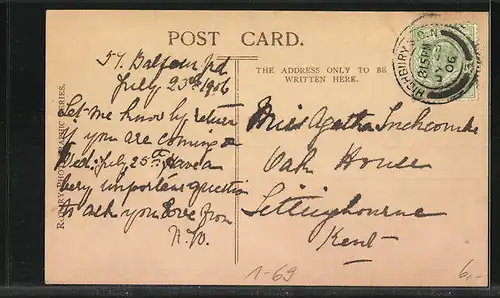 POST CARD.
THE ADDRESS ONLY TO BE
WRITTEN HERE.
57. Balfour rd
July 23rd 1906
Let me know by return
if you are coming on
Wed: July 25th, Have a
very important question
to ask you Love from
Miss Agatha Inchcombe
Oak House
Sittingbourne
Kent
ROTARY PHOTOGRAPHIC SERIES.
HIGHBURY
8.15PM
06
1-69
6,-